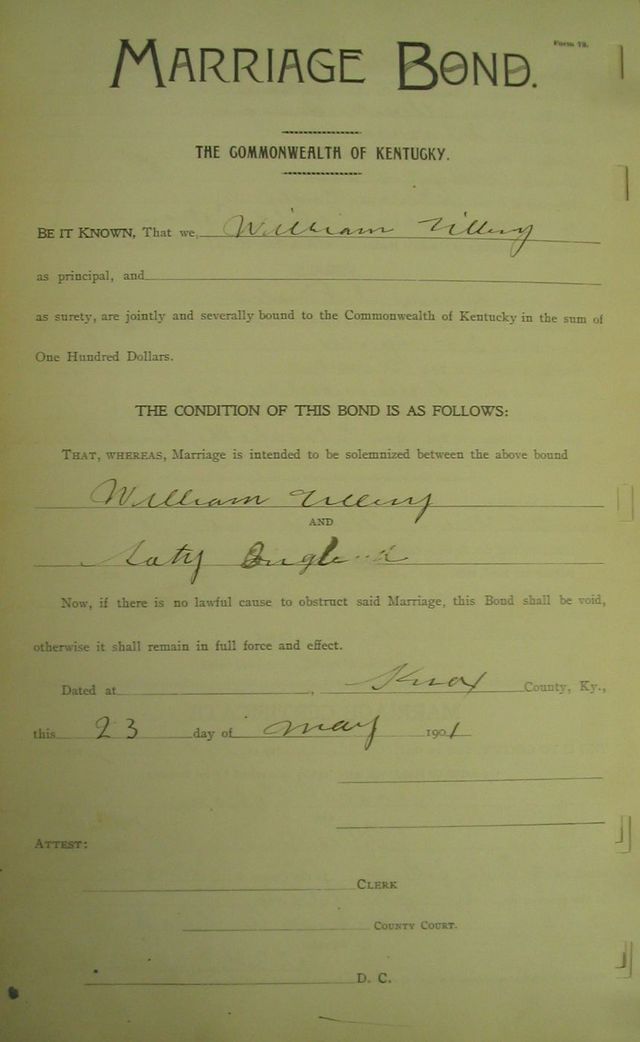 Form 78.
MARRIAGE BOND.
THE COMMONWEALTH OF KENTUCKY.
BE IT KNOWN, That we, William
as principal, and
as surety, are jointly and severally bound to the Commonwealth of Kentucky in the sum of
One Hundred Dollars.
THE CONDITION OF THIS BOND IS AS FOLLOWS:
THAT, WHEREAS, Marriage is intended to be solemnized between the above bound
William
AND
England
Now, if there is no lawful cause to obstruct said Marriage, this Bond shall be void,
otherwise it shall remain in full force and effect.
Dated at , Knox County, Ky.,
this 23 day of May 1901
ATTEST:
CLERK
COUNTY COURT.
D. C.